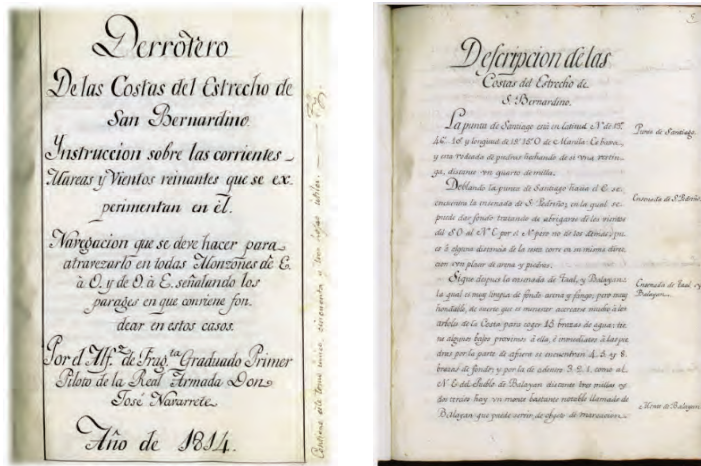 Derrotero
De las Costas del Estrecho de
San Bernardino.
Ynstruccion sobre las corrientes
Mareas y Vientos reinantes que se ex-
perimentan en él.
Navegacion que se deve hacer para
atravezarlo en todas Monzónes de E.
á O. y de O. á E. señalando los
parages en que conviene fon
dear en estos casos.
Por el Alf.z de Frag.ta Graduado Primer
Piloto de la Real Armada Don
José Navarrete
Año de 1814.
Contiene este tomo cincuenta y tres hojas utiles.
Descripcion de las
Costas del Estrecho de
S. Bernardino.
La punta de Santiago está en latitud N. de 13°
46' y longitud de O. de Manila. Es
y esta rodeada de piedras hechando de si una restin-
ga, distante un quarto de milla.
Doblando la punta de Santiago hacia el E. se
encuentra la ensenada de S. Pedriño, en la qual se
puede dar fondo tratando de abrigarse de los vientos
del S.O. al N. E. por el N. pero no de los demas; pu-
es á alguna distancia de la costa corre en su misma direc-
cion con placer de arena y piedras.
Sigue despues la ensenada de Taal, y Balayan
la qual es muy limpia de fondo arena y fango; pero muy
hondable, de suerte que es menester acercarse mucho á los
arboles de la Costa para coger 15 brazas de agua: tie-
ne algunos bajos proximos á ella, é inmediatos á las pie
dras por la parte de afuera se encuentran 4. 5. y 8.
brazas de fondo; y por la de adentro 3. 2. 1. como al
N. E. del Pueblo de Balayan distante tres millas es-
hay un monte bastante notable llamado de
Balayan que puede servir de objeto de marcacion.
Punta de Santiago.
Ensenada de S. Pedriño.
Ensenada de Taal y
Balayan.
Monte de Balayan.